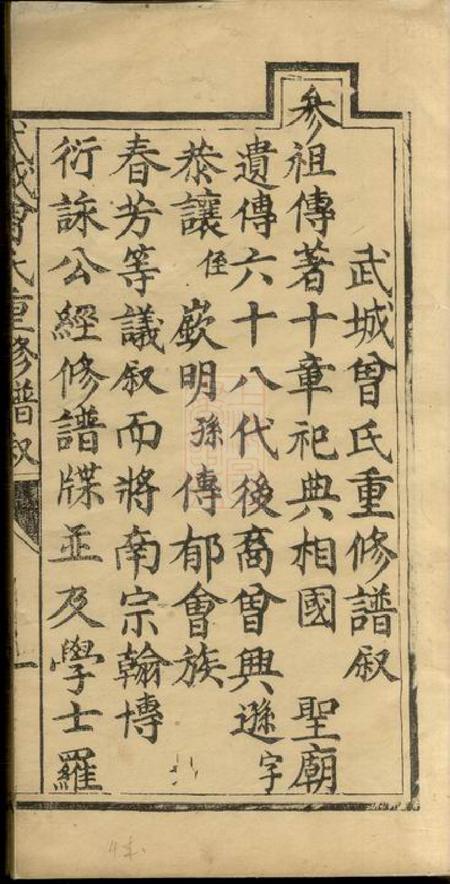 武城曾氏重修譜叙
參祖傳著十章祀典相國 聖廟
遺傳六十八代後裔曾興遜字
恭讓侄嶔明孫傳郁會族
春芳等議叙而將南宗翰博
衍詠公經修譜牒並及學士羅
武城曾氏重修譜叙
一